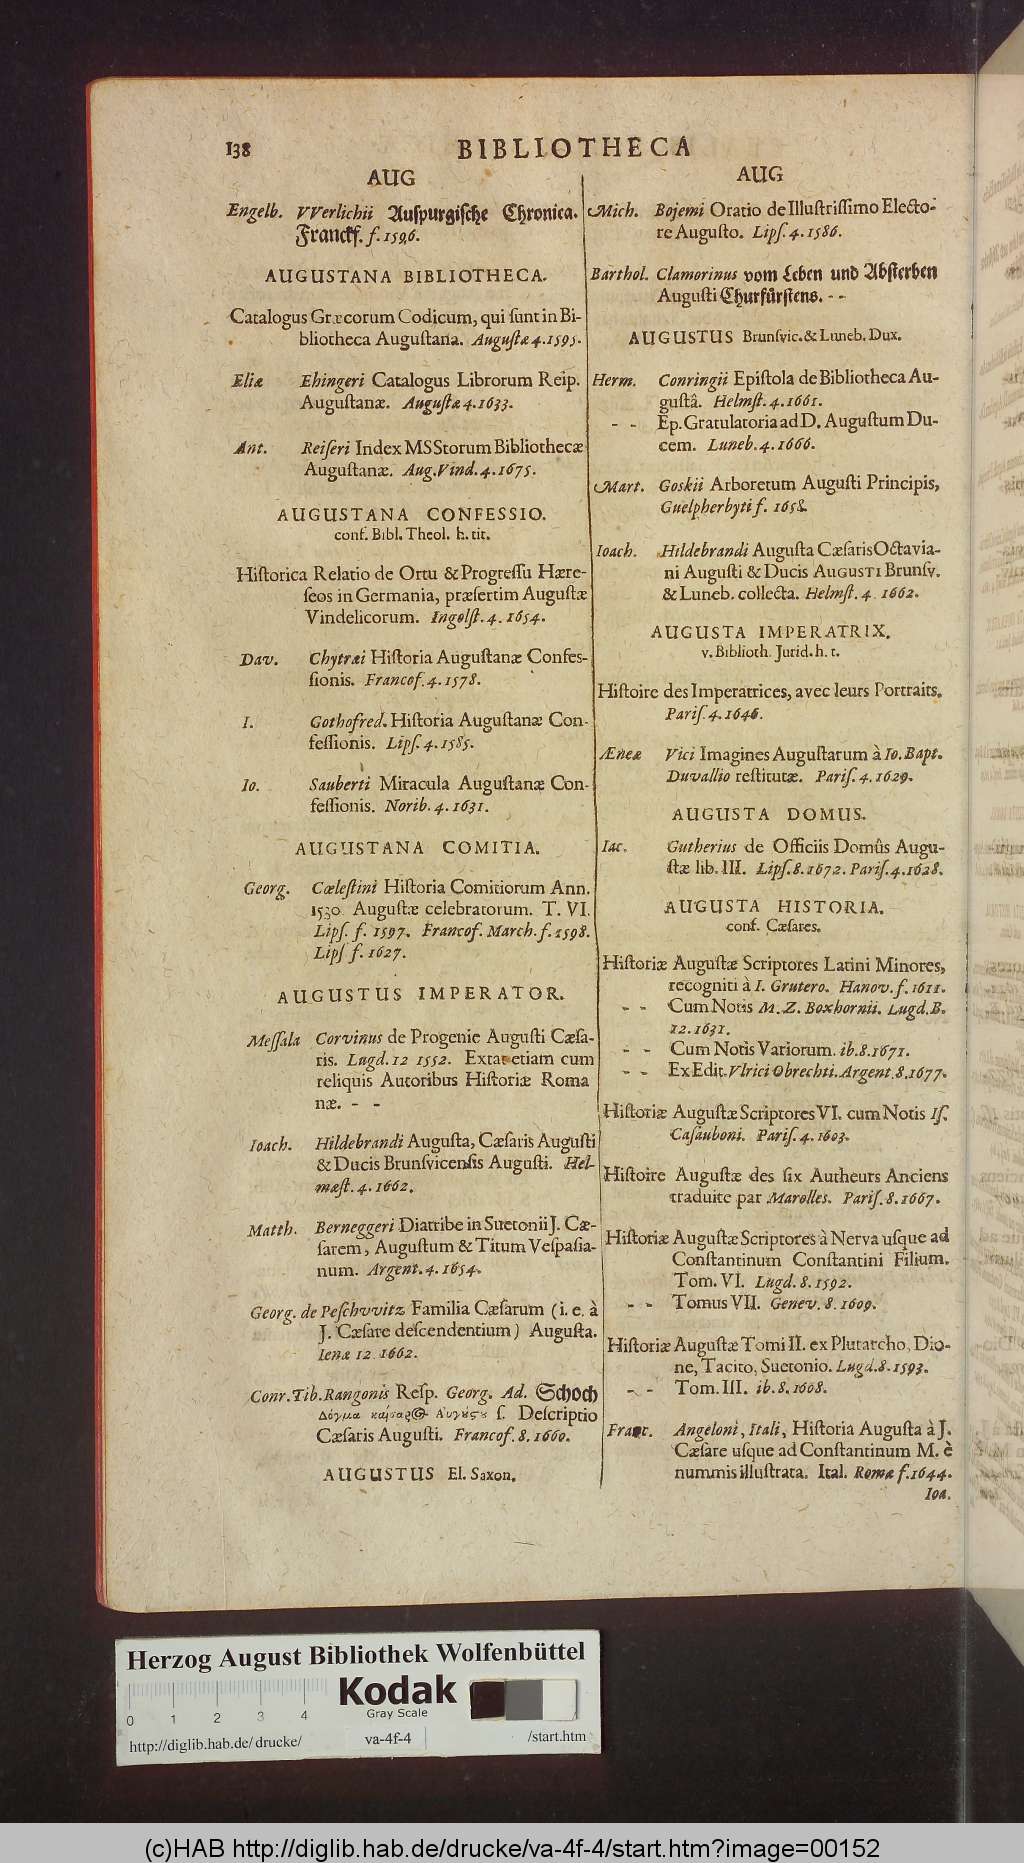 138
BIBLIOTHECA
AUG
Engelb. VVerlichii Auſpurgiſche Chronica.
Franckf. f. 1596.
AUGUSTANA BIBLIOTHECA.
Catalogus Græcorum Codicum, qui ſunt in Bi-
bliotheca Auguſtana. Auguſtæ 4. 1595.
Eliæ Ehingeri Catalogus Librorum Reip.
Auguſtanæ. Auguſtæ 4. 1633.
Ant. Reiſeri Index MSStorum Bibliothecæ
Auguſtanæ. Aug. Vind. 4. 1675.
AUGUSTANA CONFESSIO.
conf. Bibl. Theol. h. tit.
Hiſtorica Relatio de Ortu & Progreſſu Hære-
ſeos in Germania, præſertim Auguſtæ
Vindelicorum. Ingolſt. 4. 1654.
Dav. Chytræi Hiſtoria Auguſtanæ Confes-
ſionis. Francof. 4. 1578.
I. Gothofred. Hiſtoria Auguſtanæ Con-
feſſionis. Lipſ. 4. 1585.
Io. Sauberti Miracula Auguſtanæ Con-
feſſionis. Norib. 4. 1631.
AUGUSTANA COMITIA.
Georg. Cœleſtini Hiſtoria Comitiorum Ann.
1530 Auguſtæ celebratorum. T. VI.
Lipſ. f. 1597. Francof. March. f. 1598.
Lipſ f. 1627.
AUGUSTUS IMPERATOR.
Meſſala Corvinus de Progenie Auguſti Cæſa-
ris. Lugd. 12 1552. Extat etiam cum
reliquis Autoribus Hiſtoriæ Roma
næ. - -
Ioach. Hildebrandi Auguſta, Cæſaris Auguſti
& Ducis Brunſvicenſis Auguſti. Hel-
mæſt. 4. 1662.
Matth. Berneggeri Diatribe in Suetonii J. Cæ-
ſarem, Auguſtum & Titum Veſpaſia-
num. Argent. 4. 1654.
Georg. de Peſchvvitz Familia Cæſarum (i. e. à
J. Cæſare deſcendentium) Auguſta.
Ienæ 12 1662.
Conr. Tib. Rangonis Reſp. Georg. Ad. Schoch
Δόγμα ſ. Deſcriptio
Cæſaris Auguſti. Francof. 8. 1660.
AUGUSTUS El. Saxon.
AUG
Mich. Bojemi Oratio de Illuſtriſſimo Electo-
re Auguſto. Lipſ. 4. 1586.
Barthol. Clamorinus vom Leben und Abſterben
Auguſti Churfürſtens. - -
AUGUSTUS Brunſvic. & Luneb. Dux.
Herm. Conringii Epiſtola de Bibliotheca Au-
guſtâ. Helmſt. 4. 1661.
- - Ep. Gratulatoria ad D. Auguſtum Du-
cem. Luneb. 4. 1666.
Mart. Goskii Arboretum Auguſti Principis,
Guelpherbyti f. 1658.
Ioach. Hildebrandi Auguſta Cæſaris Octavia-
ni Auguſti & Ducis AUGUSTI Brunſv.
& Luneb. collecta. Helmſt. 4 1662.
AUGUSTA IMPERATRIX.
v. Biblioth. Jurid. h. t.
Hiſtoire des Imperatrices, avec leurs Portraits.
Pariſ. 4. 1646.
Æneæ Vici Imagines Auguſtarum à Io. Bapt.
Duvallio reſtitutæ. Pariſ. 4. 1629.
AUGUSTA DOMUS.
Iac. Gutherius de Officiis Domûs Augu-
ſtæ lib. III. Lipſ. 8. 1672. Pariſ. 4. 1628.
AUGUSTA HISTORIA.
conf. Cæſares.
Hiſtoriæ Auguſtæ Scriptores Latini Minores,
recogniti à I. Grutero. Hanov. f. 1611.
- - Cum Notis M. Z. Boxhornii. Lugd. B.
12. 1631.
- - Cum Notis Variorum. ib. 8. 1671.
- - Ex Edit. Vlrici Obrechti. Argent. 8. 1677.
Hiſtoriæ Auguſtæ Scriptores VI. cum Notis Iſ.
Caſauboni. Pariſ. 4. 1603.
Hiſtoire Auguſtæ des ſix Autheurs Anciens
traduite par Marolles. Pariſ. 8. 1667.
Hiſtoriæ Auguſtæ Scriptores à Nerva uſque ad
Conſtantinum Conſtantini Filium.
Tom. VI. Lugd. 8. 1592.
- - Tomus VII. Genev. 8. 1609.
Hiſtoriæ Auguſtæ Tomi II. ex Plutarcho, Dio-
ne, Tacito, Suetonio. Lugd. 8. 1593.
- - Tom. III. ib. 8. 1608.
Franc. Angeloni, Itali, Hiſtoria Auguſta à J.
Cæſare uſque ad Conſtantinum M. è
nummis illuſtrata. Ital. Romæ f. 1644.
Ioa.
Herzog August Bibliothek Wolfenbüttel
Kodak
Gray Scale
0 1 2 3 4
http://diglib.hab.de/drucke/ va-4f-4 /start.htm
(c)HAB http://diglib.hab.de/drucke/va-4f-4/start.htm?image=00152